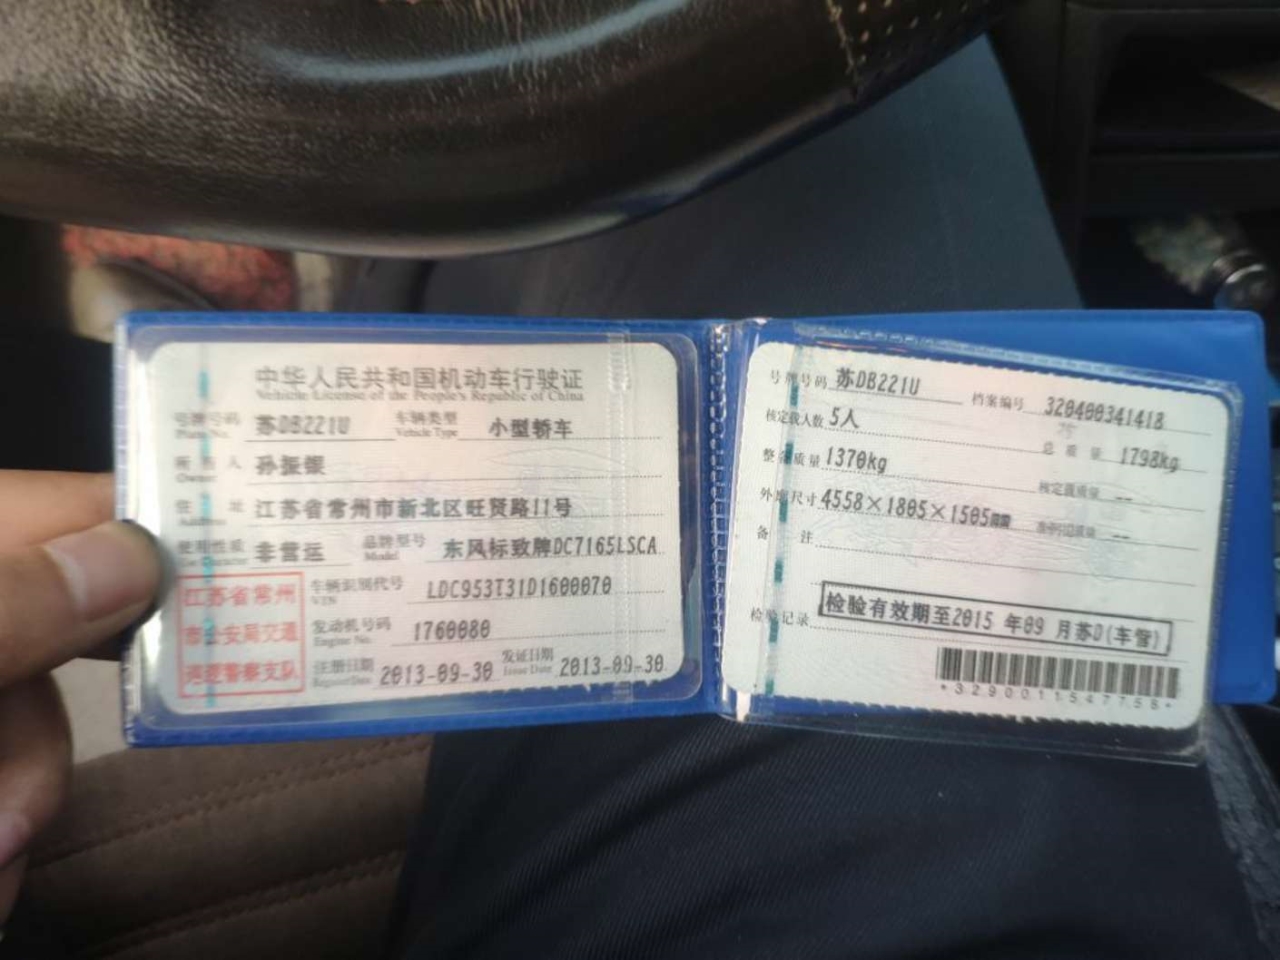 中华人民共和国机动车行驶证
Vehicle License of the People's Republic of China
号牌号码 苏DB221U 车辆类型 小型轿车
Plate No. Vehicle Type
所有人 孙振银
Owner
住址 江苏省常州市新北区旺贤路11号
Address
使用性质 非营运 品牌型号 东风标致牌DC7165LSCA
Use Character Model
江苏省常州
市公安局交通
巡逻警察支队
车辆识别代号 LDC953T31D1600070
VIN
发动机号码 1760080
Engine No.
注册日期 2013-09-30 发证日期 2013-09-30
Register Date Issue Date
号牌号码 苏DB221U 档案编号 320400341418
核定载人数 5人 总质量 1798kg
整备质量 1370kg 核定载质量 --
外廓尺寸 4558×1805×1505mm 准牵引总质量 --
备注
检验记录 检验有效期至2015 年09 月苏D(车管)
*3290011547758*